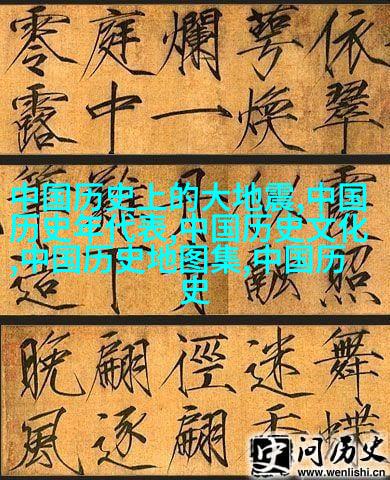 依翠
萼煥
爛一
庭中
零露
中国历史上的大地震,中国
历史年代表,中国历史文化
,中国历史地图集,中国历
史
照
融
下
造
舞蝶
迷香
徑翩
翩逐
晚風
问历史
www.wenlishi.cn